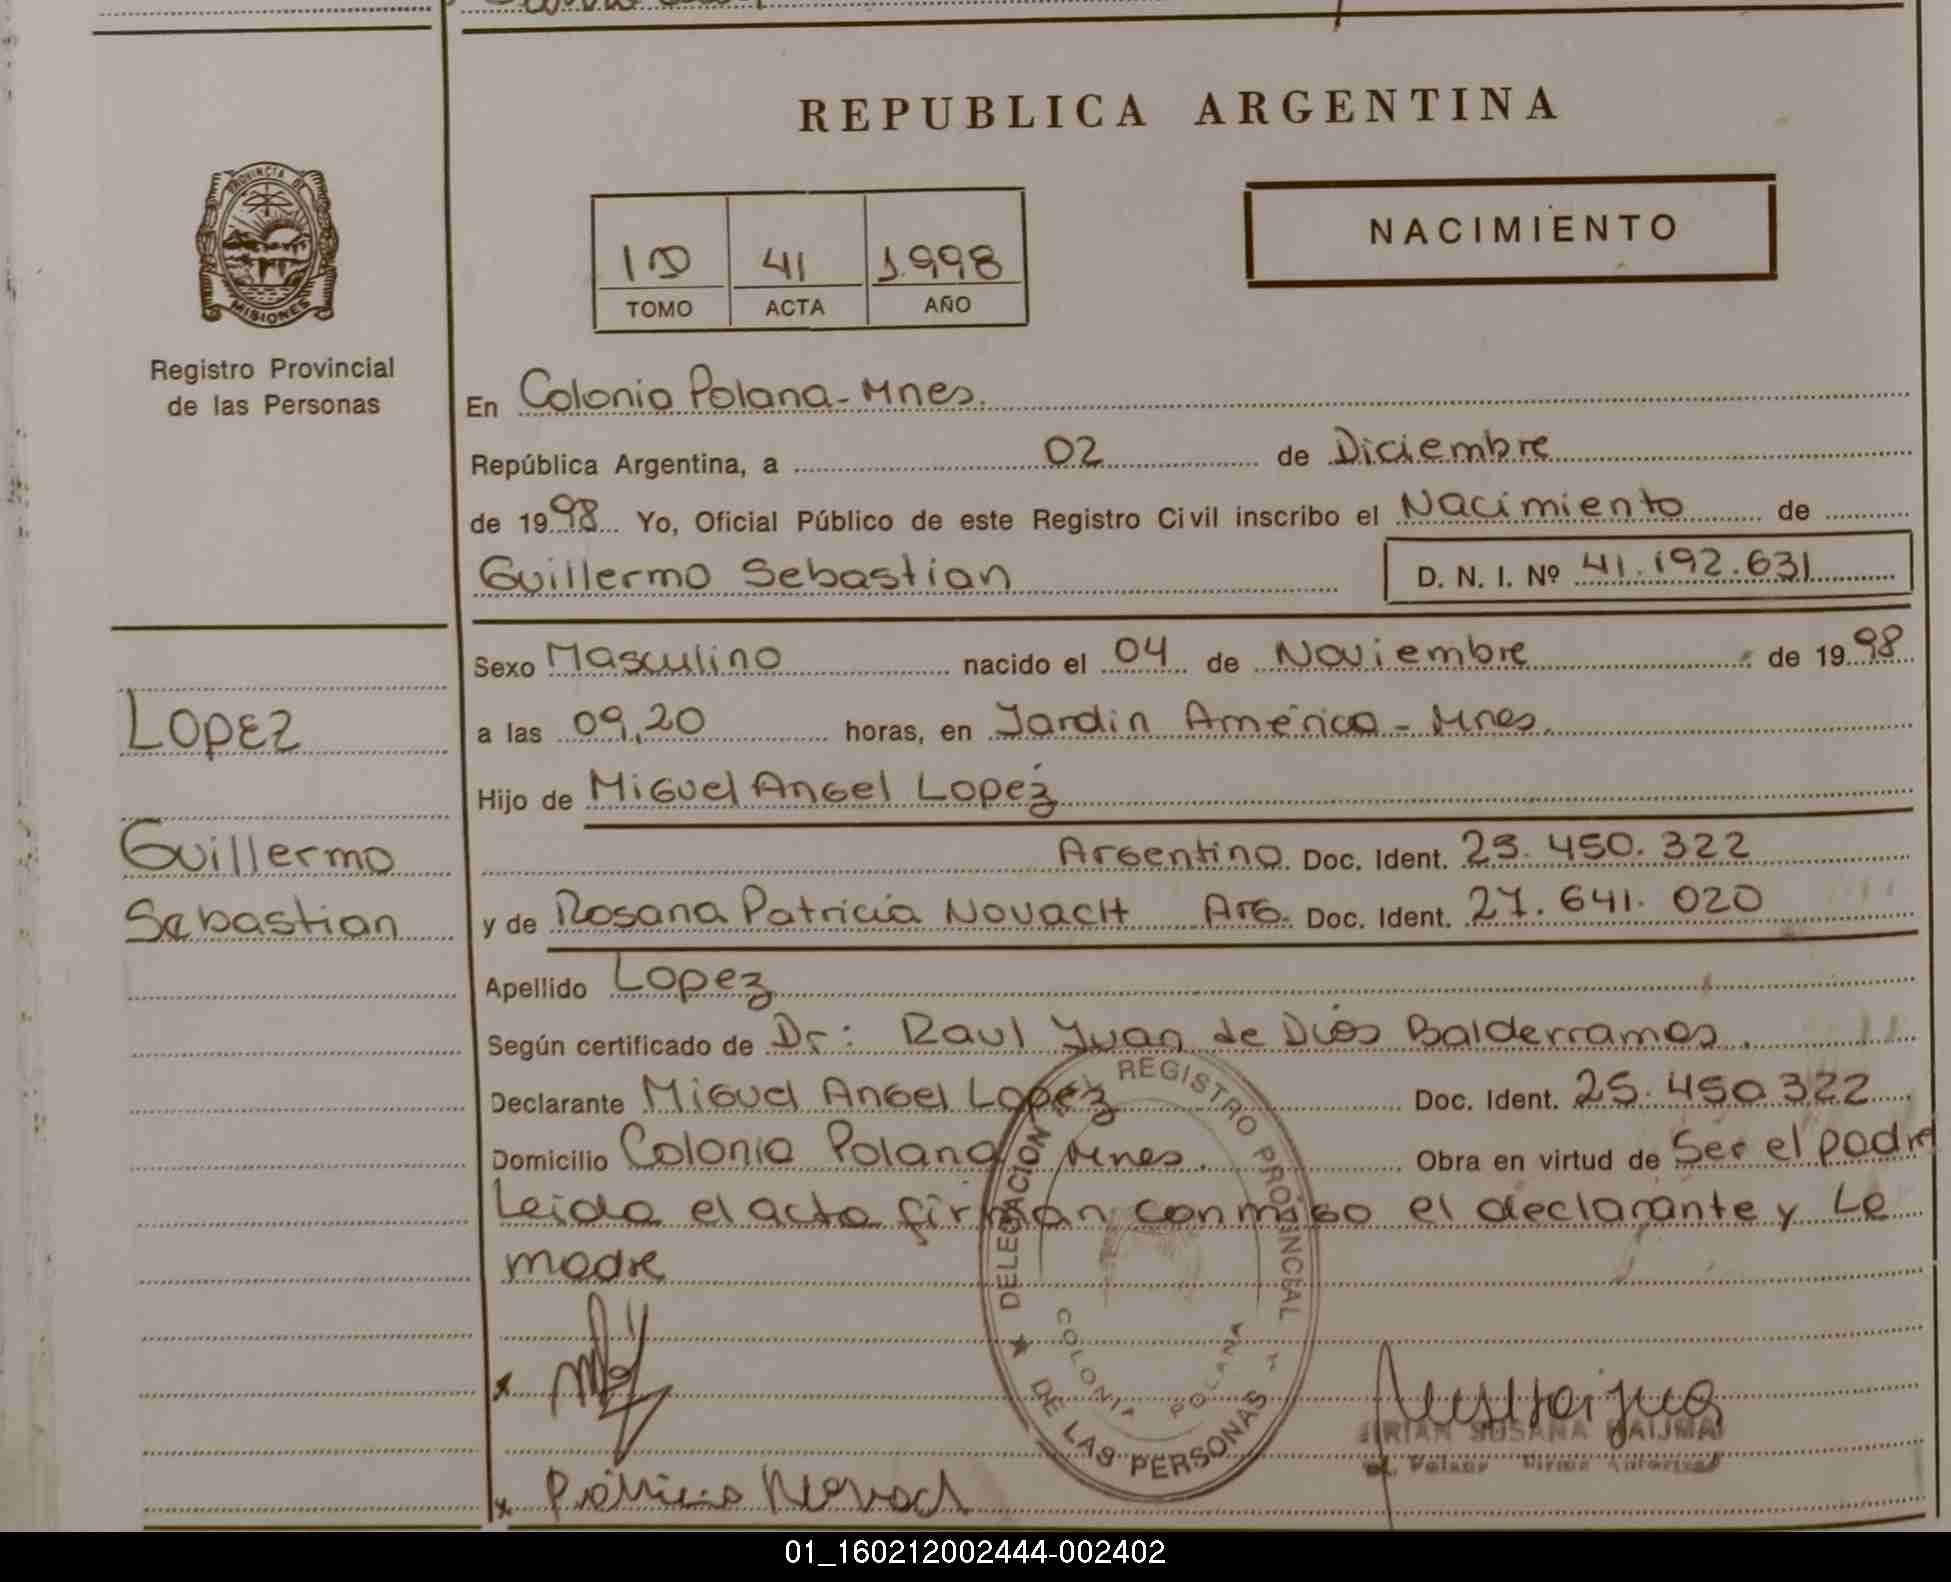 REPUBLICA ARGENTINA
PROVINCIA DE
MISIONES
Registro Provincial
de las Personas
1º 41 1.998
TOMO ACTA AÑO
NACIMIENTO
En Colonia Polana - Mnes.
República Argentina, a 02 de Diciembre
de 1998 Yo, Oficial Público de este Registro Civil inscribo el Nacimiento de
Guillermo Sebastian D. N. I. Nº 41.192.631
LOPEZ
Guillermo
Sebastian
Sexo Masculino nacido el 04 de Noviembre de 1998
a las 09,20 horas, en Jardin América - Mnes.
Hijo de Miguel Angel Lopez
Argentino. Doc. Ident. 25.450.322
y de Rosana Patricia Novach Arg. Doc. Ident. 27.641.020
Apellido Lopez
Según certificado de Dr: Raul Juan de Dios Balderramos.
Declarante Miguel Angel Lopez Doc. Ident. 25.450.322
Domicilio Colonia Polana Mnes. Obra en virtud de Ser el padre
Leida el acta firman conmigo el declarante y La
madre
DELEGACION DEL REGISTRO PROVINCIAL
DE LAS PERSONAS
COLONIA POLANA
Patricia Novach
SUSANA
Polana Firma Autorizad
01_160212002444-002402